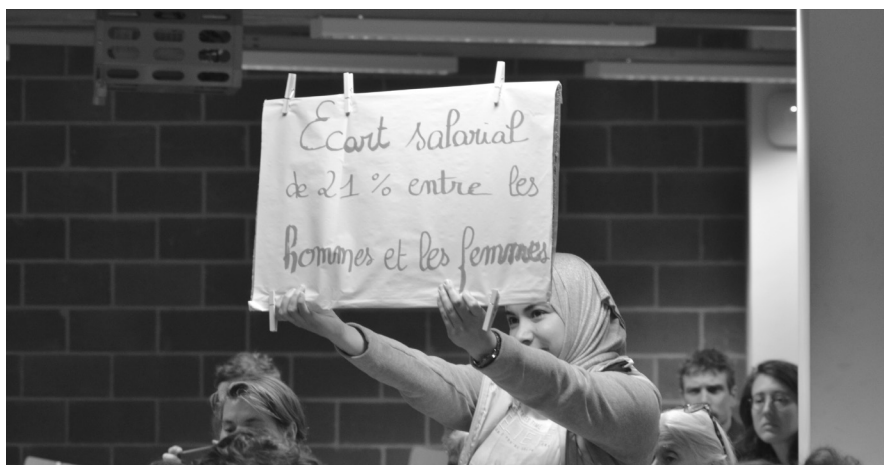 Ecart salarial
de 21 % entre les
hommes et les femmes